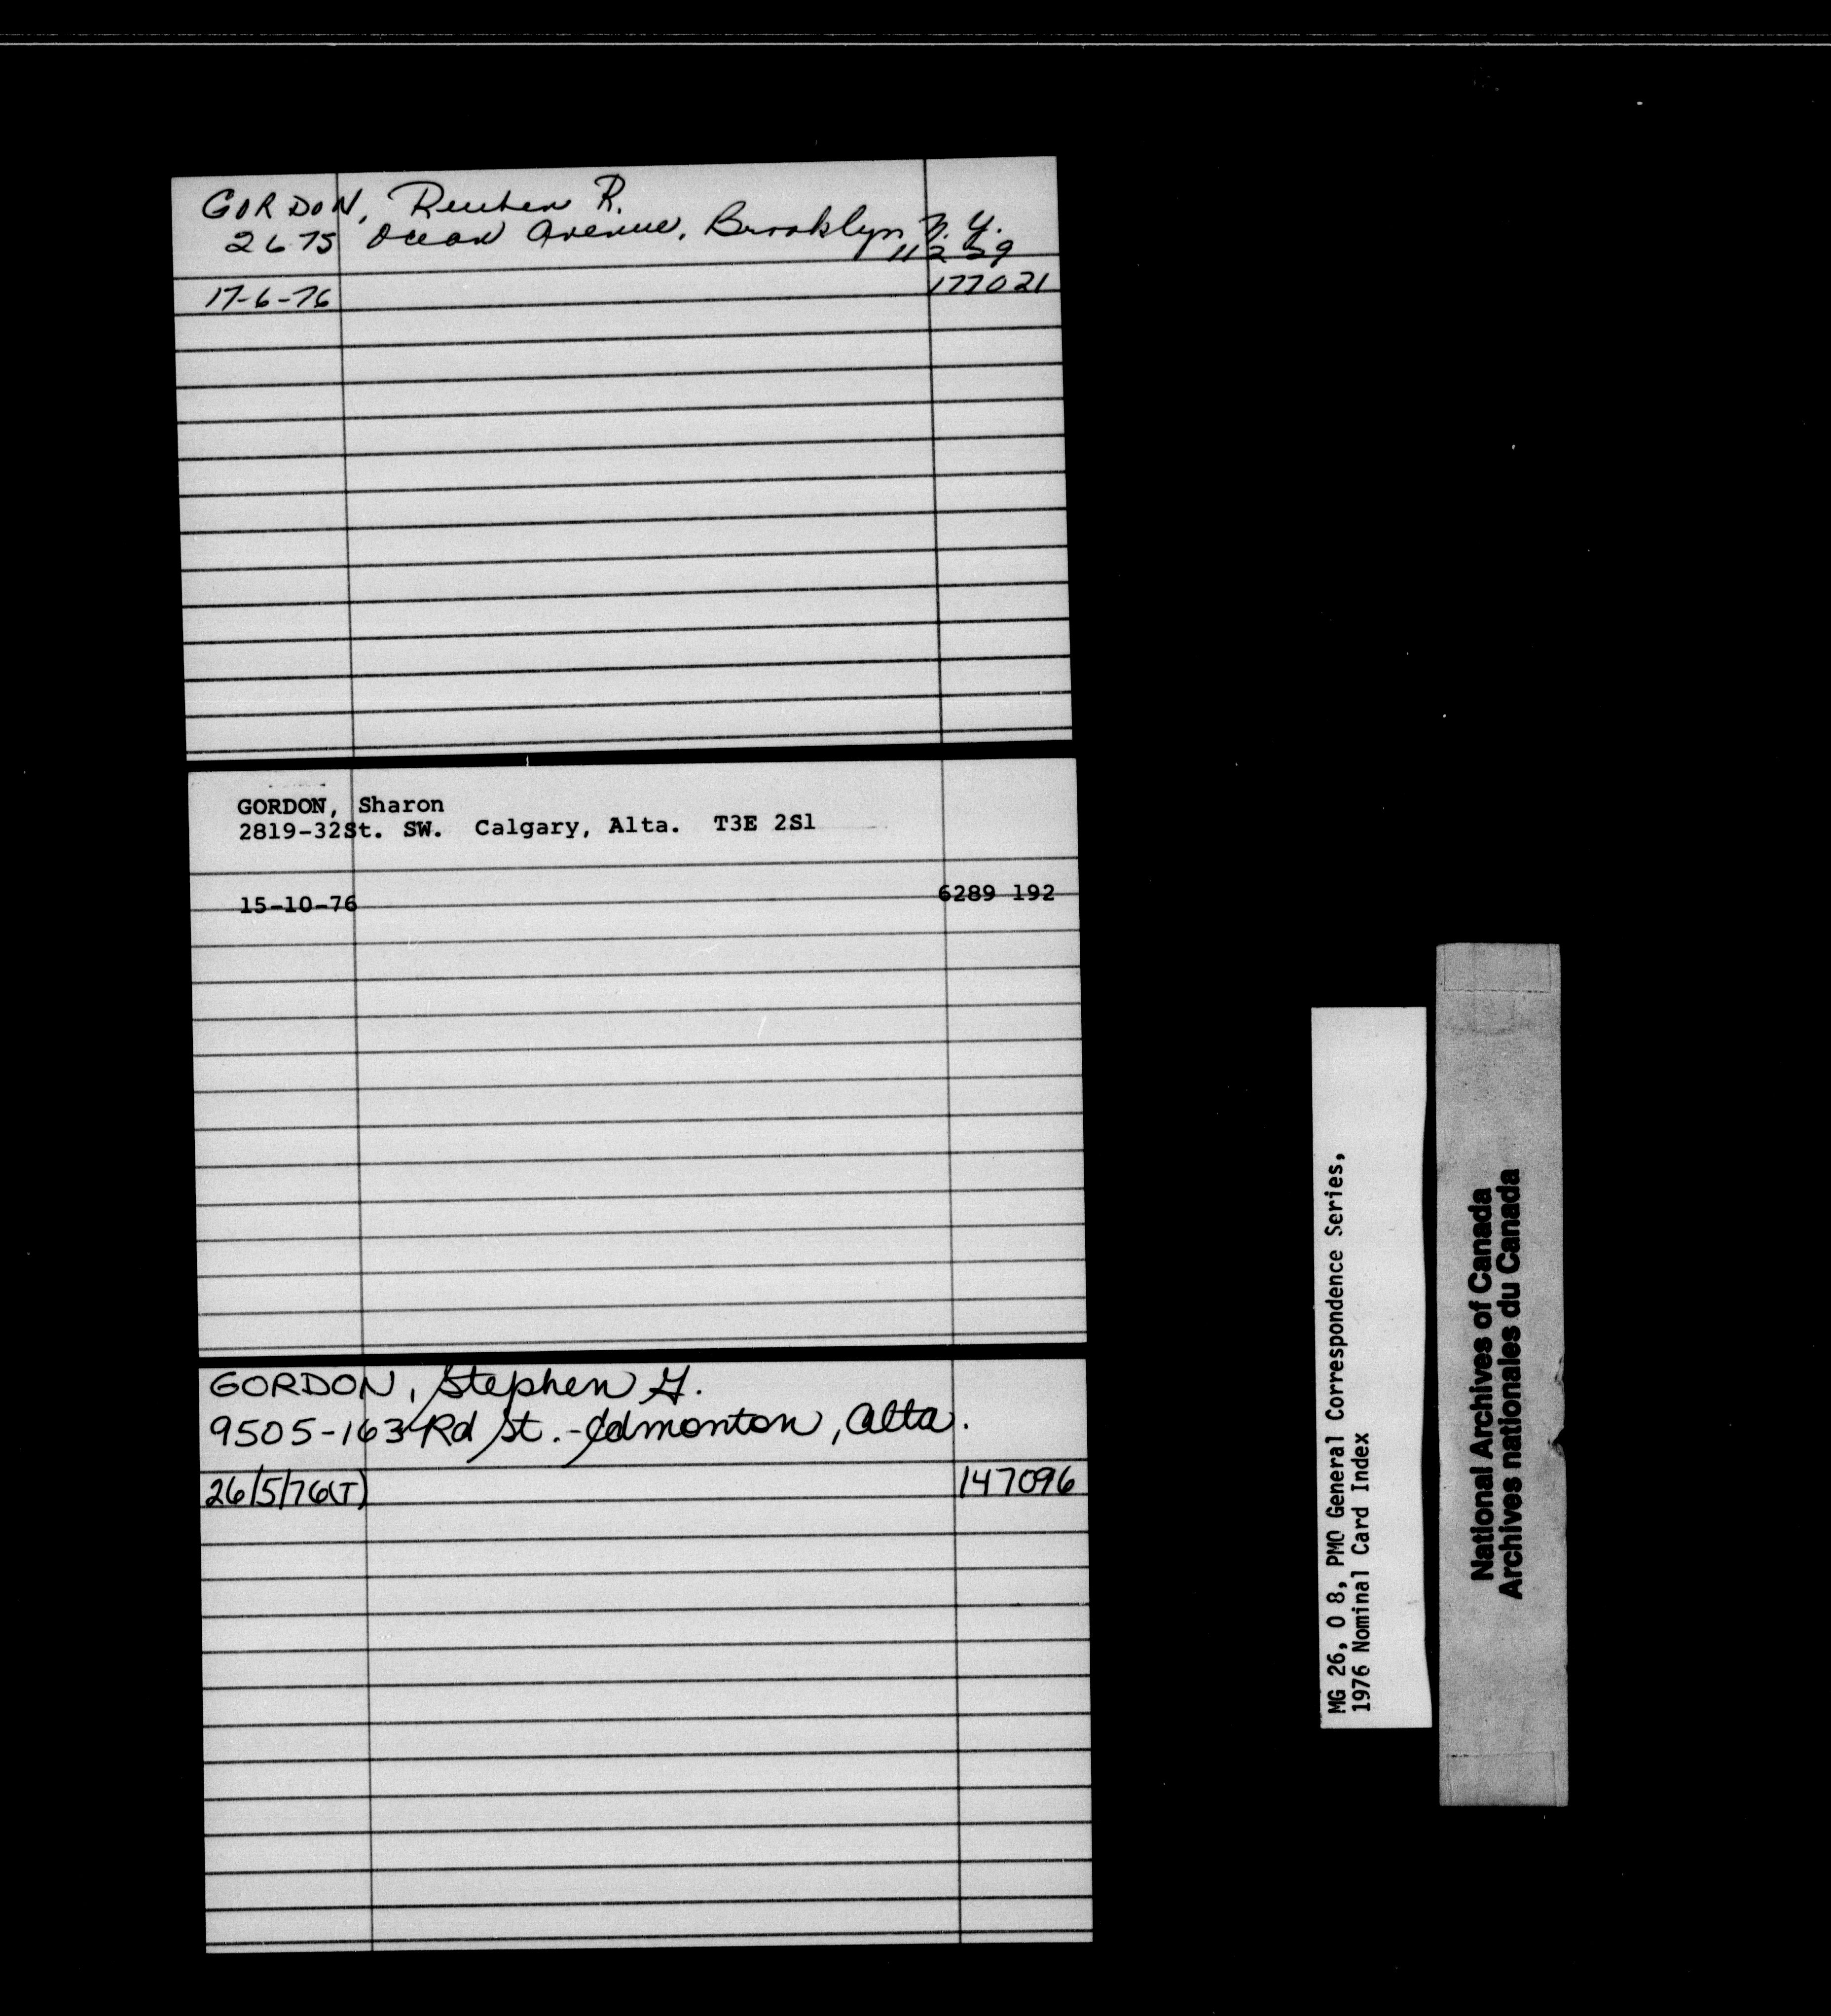 GORDON, Reuben R.
2675 Ocean Avenue, Brooklyn N.Y.
11229
17-6-76 177021
GORDON, Sharon
2819-32St. SW. Calgary, Alta. T3E 2S1
15-10-76 6289 192
GORDON, Stephen G.
9505-163Rd St. - Edmonton, Alta.
26/5/76(T) 147096
MG 26, O 8, PMO General Correspondence Series,
1976 Nominal Card Index
National Archives of Canada
Archives nationales du Canada